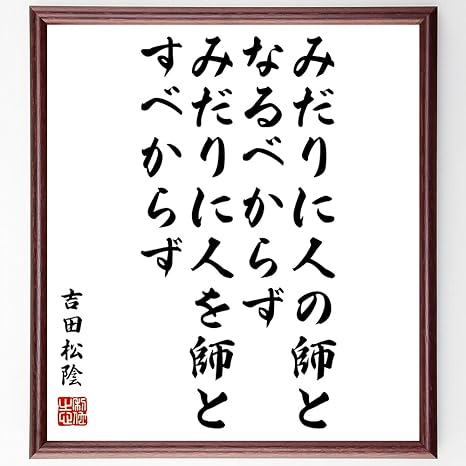 みだりに人の師と
なるべからず
みだりに人を師と
すべからず
吉田松陰